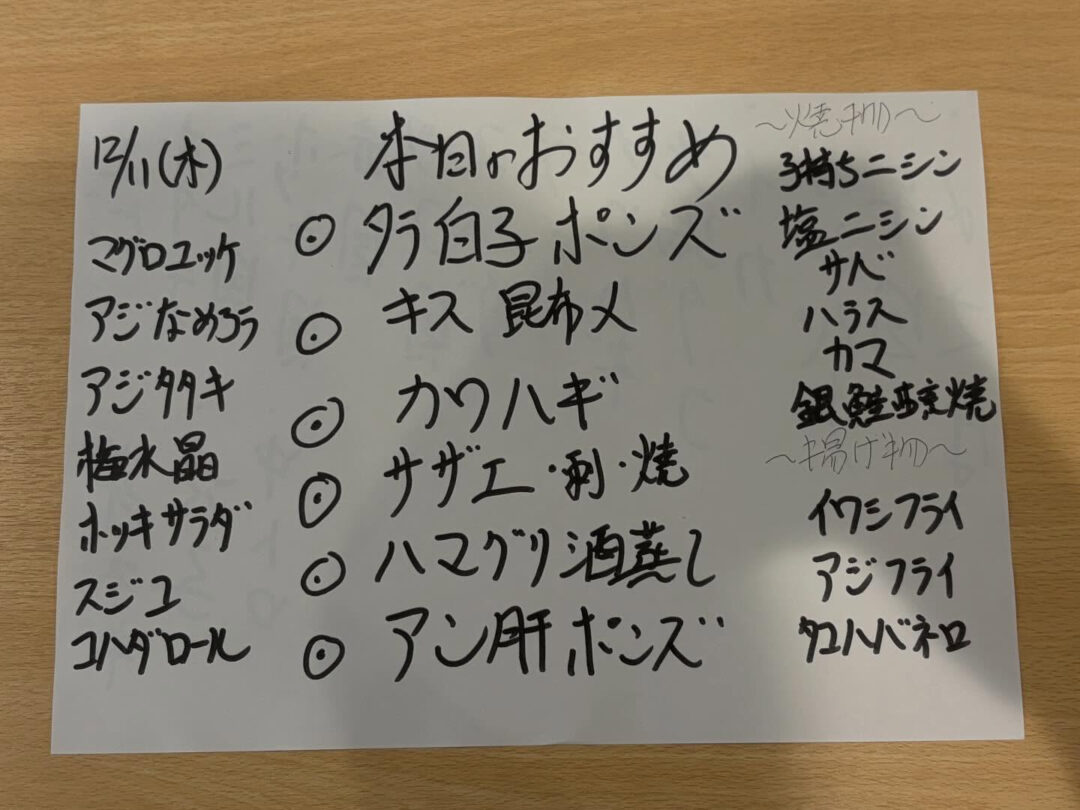 12/11(木)
マグロユッケ
アジなめろう
アジタタキ
梅水晶
ホッキサラダ
スジコ
コハダロール
本日のおすすめ
◎ タラ白子ポンズ
◎ キス 昆布〆
◎ カワハギ
◎ サザエ・刺・焼
◎ ハマグリ酒蒸し
◎ アン肝ポンズ
～焼物～
子持ちニシン
塩ニシン
サバ
ハラス
カマ
銀鮭琼焼
～揚げ物～
イワシフライ
アジフライ
タコハバネロ